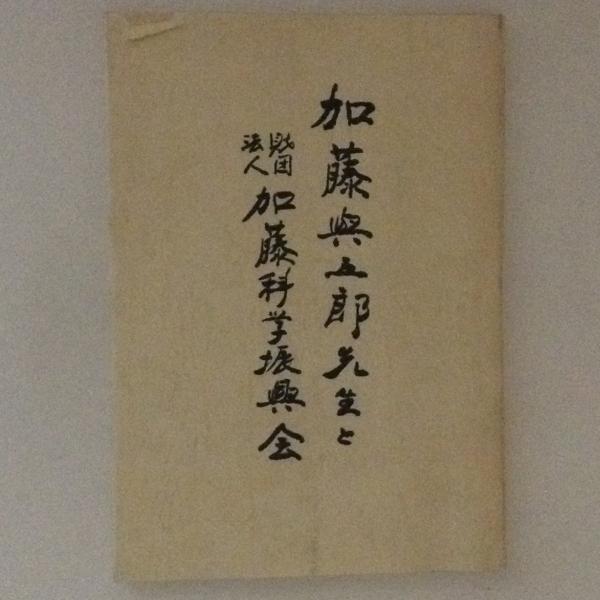 加藤與五郎先生と
財団法人加藤科学振興会